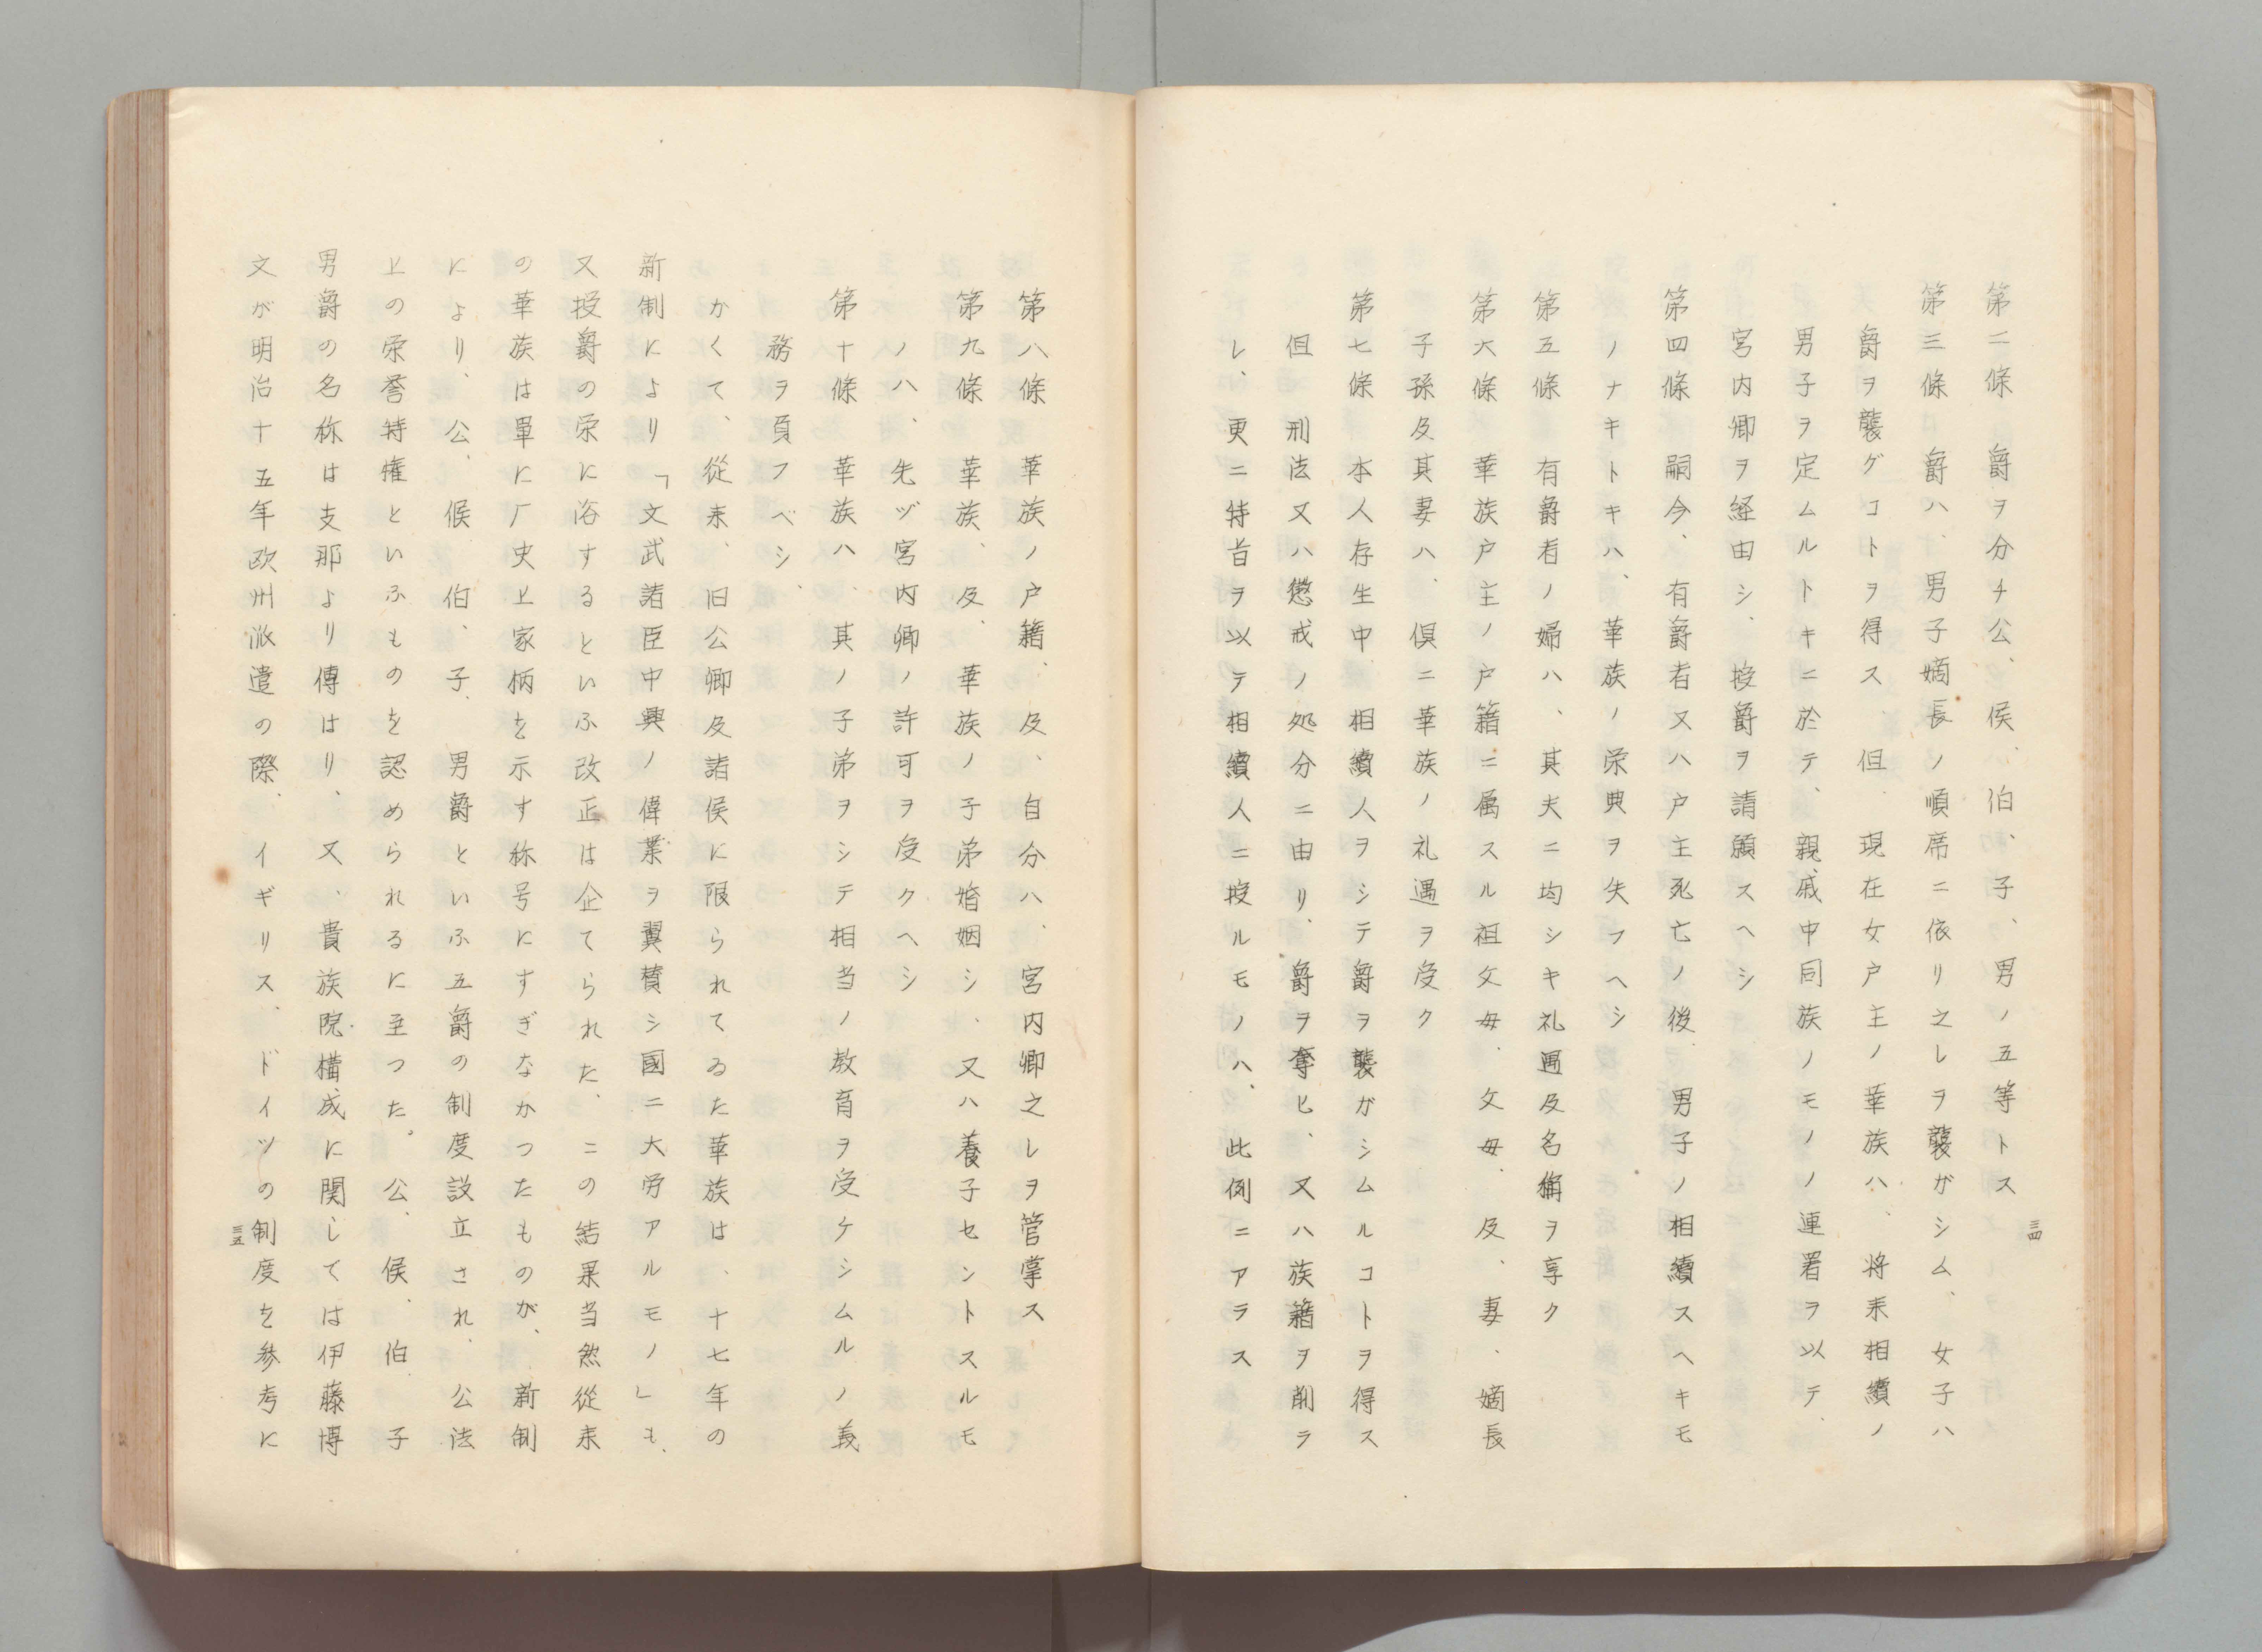 三四
第二條　爵ヲ分チ公、侯、伯、子、男ノ五等トス
第三條　爵ハ、男子嫡長ノ順席ニ依リ之レヲ襲ガシム、女子ハ
爵ヲ襲グコトヲ得ス、但　現在女戸主ノ華族ハ、将来相續ノ
男子ヲ定ムルトキニ於テ、親戚中同族ノモノノ連署ヲ以テ、
宮内卿ヲ経由シ、授爵ヲ請願スヘシ
第四條　嗣今、有爵者又ハ戸主死亡ノ後、男子ノ相續スヘキモ
ノナキトキハ、華族ノ栄典ヲ失フヘシ
第五條　有爵者ノ婦ハ、其夫ニ均シキ礼遇及名稱ヲ享ク
第六條　華族戸主ノ戸籍ニ属スル祖父母、父母、及、妻、嫡長
子孫及其妻ハ、倶ニ華族ノ礼遇ヲ受ク
第七條　本人存生中、相續人ヲシテ爵ヲ襲ガシムルコトヲ得ス
但　刑法又ハ懲戒ノ処分ニ由リ、爵ヲ奪ヒ、又ハ族籍ヲ削ラ
レ、更ニ特旨ヲ以テ相續人ニ授ルモノハ、此例ニアラス
第八條　華族ノ戸籍、及、自分ハ、宮内卿之レヲ管掌ス
第九條　華族、及、華族ノ子弟婚姻シ、又ハ養子セントスルモ
ノハ、先ヅ宮内卿ノ許可ヲ受クヘシ
第十條　華族ハ、其ノ子弟ヲシテ相当ノ教育ヲ受ケシムルノ義
務ヲ負フベシ、
かくて、從来、旧公卿及諸侯に限られてゐた華族は、十七年の
新制により「文武諸臣中興ノ偉業ヲ翼賛シ國ニ大労アルモノ」も、
又授爵の栄に浴するといふ改正は企てられた、この結果当然從来
の華族は單に厂史上家柄を示す称号にすぎなかつたものが、新制
により、公、侯、伯、子、男爵といふ五爵の制度設立され、公法
上の栄誉特権といふものを認められるに至つた。公、侯、伯、子
男爵の名称は支那より傳はり、又、貴族院構成に関しては伊藤博
文が明治十五年欧州派遣の際、イギリス、ドイツの制度を参考に
三五